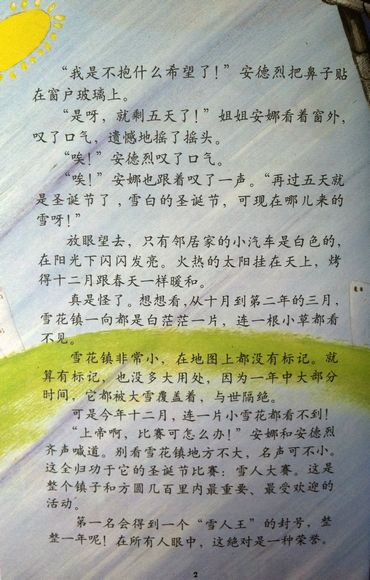 “我是不抱什么希望了！”安德烈把鼻子贴
在窗户玻璃上。
“是呀，就剩五天了！”姐姐安娜看着窗外，
叹了口气，遗憾地摇了摇头。
“唉！”安德烈叹了口气。
“唉！”安娜也跟着叹了一声。“再过五天就
是圣诞节了，雪白的圣诞节，可现在哪儿来的
雪呀！”
放眼望去，只有邻居家的小汽车是白色的，
在阳光下闪闪发亮。火热的太阳挂在天上，烤
得十二月跟春天一样暖和。
真是怪了。想想看，从十月到第二年的三月，
雪花镇一向都是白茫茫一片，连一根小草都看
不见。
雪花镇非常小，在地图上都没有标记。就
算有标记，也没多大用处，因为一年中大部分
时间，它都被大雪覆盖着，与世隔绝。
可是今年十二月，连一片小雪花都看不到！
“上帝啊，比赛可怎么办！”安娜和安德烈
齐声喊道。别看雪花镇地方不大，名声可不小。
这全归功于它的圣诞节比赛：雪人大赛。这是
整个镇子和方圆几百里内最重要、最受欢迎的
活动。
第一名会得到一个“雪人王”的封号，整
整一年呢！在所有人眼中，这绝对是一种荣誉。
2